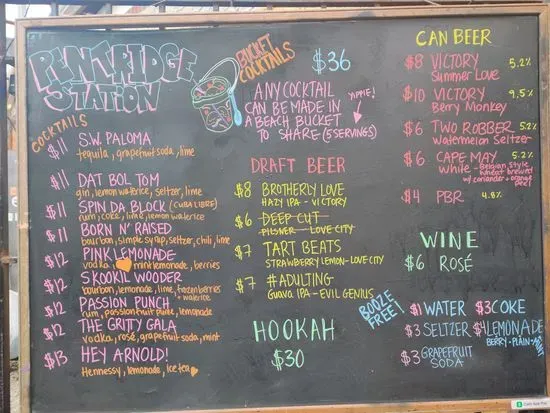 PENTRIDGE
STATION
COCKTAILS
$11 S.W. PALOMA
tequila, grapefruit soda, lime
$11 DAT BOL TOM
gin, lemon waterice, seltzer, lime
$11 SPIN DA BLOCK (CUBA LIBRE)
rum, coke, lime, lemon waterice
$11 BORN N' RAISED
bourbon, simple syrup, seltzer, chili, lime
$12 PINK LEMONADE
vodka mint lemonade, berries
$12 SKOOKIL WOODER
bourbon, lemonade, lime, frozen berries
+ waterice
$12 PASSION PUNCH
rum, passionfruit puree, lemonade
$12 THE GRITY GALA
vodka, rosé, grapefruit soda, mint
$13 HEY ARNOLD!
Hennessy, lemonade, Ice tea
BUCKET
COCKTAILS
$36
ANY COCKTAIL
CAN BE MADE IN
A BEACH BUCKET
TO SHARE (5 SERVINGS)
YIPPIE!
DRAFT BEER
$8 BROTHERLY LOVE
HAZY IPA - VICTORY
$6 DEEP CUT
PILSNER - LOVE CITY
$7 TART BEATS
STRAWBERRY LEMON - LOVE CITY
$7 #ADULTING
Guava IPA - EVIL GENIUS
HOOKAH
$30
CAN BEER
$8 VICTORY 5.2%
Summer Love
$10 VICTORY 9.5%
Berry Monkey
$6 TWO ROBBER 5.2%
Watermelon Seltzer
$6 CAPE MAY 5.2%
White - Belgian Style
wheat brewed
w/ coriander + orange
peel
$4 PBR 4.8%
WINE
$6 ROSÉ
BOOZE
FREE!
$1 WATER $3 COKE
$3 SELTZER $4 LEMONADE
BERRY - PLAIN -
$3 GRAPEFRUIT
SODA